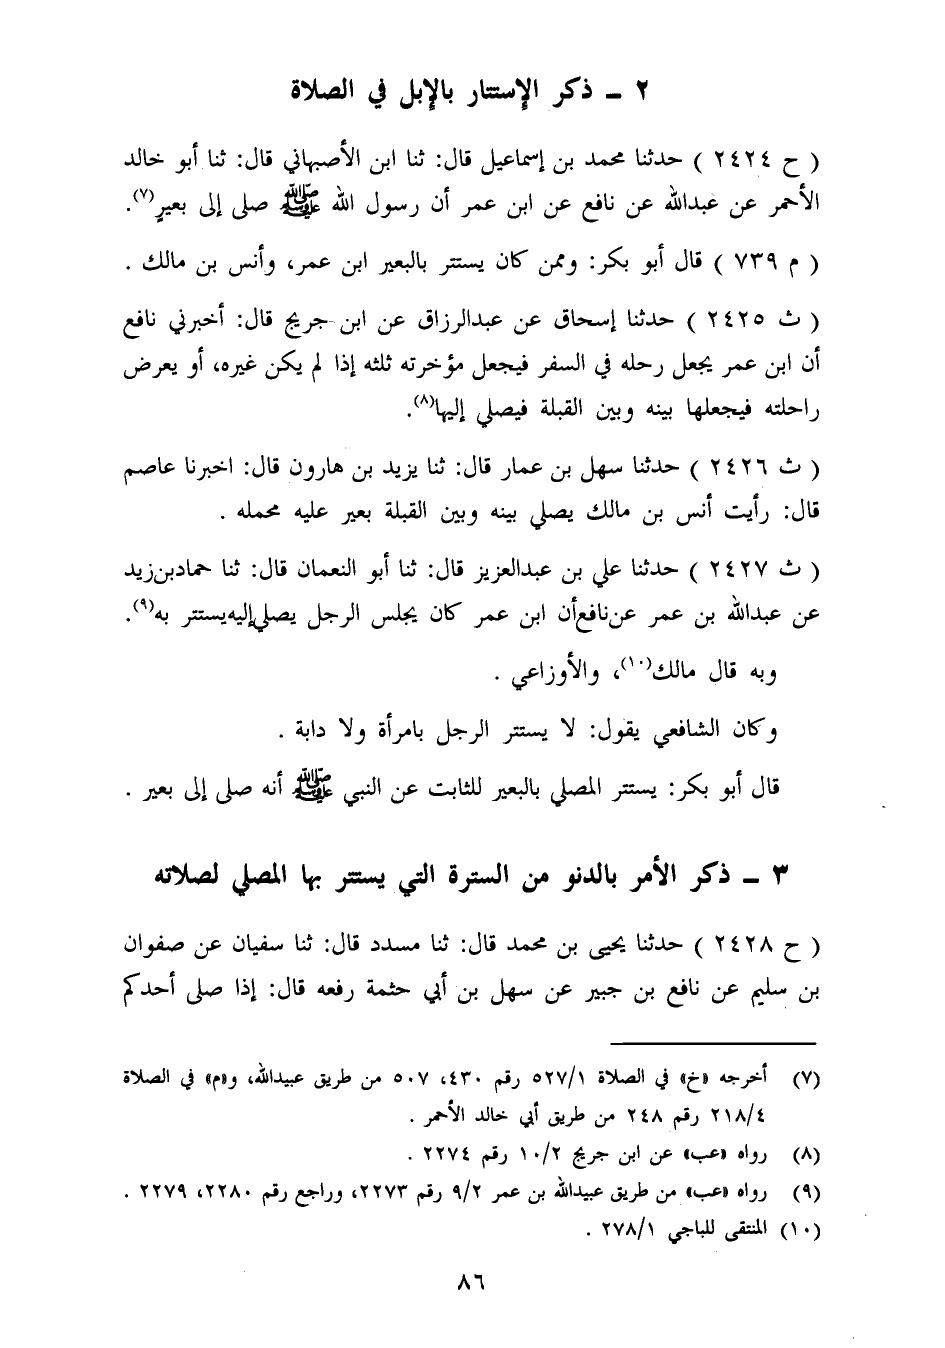 ٢ ـ ذكر الإستتار بالإبل في الصلاة
( ح ٢٤٢٤ ) حدثنا محمد بن إسماعيل قال: ثنا ابن الأصبهاني قال: ثنا أبو خالد
الأحمر عن عبدالله عن نافع عن ابن عمر أن رسول الله ﷺ صلى إلى بعيرٍ(٧).
( م ٧٣٩ ) قال أبو بكر: وممن كان يستتر بالبعير ابن عمر، وأنس بن مالك .
( ث ٢٤٢٥ ) حدثنا إسحاق عن عبدالرزاق عن ابن جريج قال: أخبرني نافع
أن ابن عمر يجعل رحله في السفر فيجعل مؤخرته ثلثه إذا لم يكن غيره، أو يعرض
راحلته فيجعلها بينه وبين القبلة فيصلي إليها(٨).
( ث ٢٤٢٦ ) حدثنا سهل بن عمار قال: ثنا يزيد بن هارون قال: اخبرنا عاصم
قال: رأيت أنس بن مالك يصلي بينه وبين القبلة بعير عليه محمله .
( ث ٢٤٢٧ ) حدثنا علي بن عبدالعزيز قال: ثنا أبو النعمان قال: ثنا حمادبن‌زيد
عن عبدالله بن عمر عن نافع أن ابن عمر كان يجلس الرجل يصلي إليه يستتر به(٩).
وبه قال مالك(١٠)، والأوزاعي .
وكان الشافعي يقول: لا يستتر الرجل بامرأة ولا دابة .
قال أبو بكر: يستتر المصلي بالبعير للثابت عن النبي ﷺ أنه صلى إلى بعير .
٣ ـ ذكر الأمر بالدنو من السترة التي يستتر بها المصلي لصلاته
( ح ٢٤٢٨ ) حدثنا يحيى بن محمد قال: ثنا مسدد قال: ثنا سفيان عن صفوان
بن سليم عن نافع بن جبير عن سهل بن أبي حثمة رفعه قال: إذا صلى أحدكم
(٧) أخرجه «خ» في الصلاة ٥٢٧/١ رقم ٤٣٠، ٥٠٧ من طريق عبيدالله، و«م» في الصلاة
٢١٨/٤ رقم ٢٤٨ من طريق أبي خالد الأحمر .
(٨) رواه «عب» عن ابن جريج ١٠/٢ رقم ٢٢٧٤ .
(٩) رواه «عب» من طريق عبيدالله بن عمر ٩/٢ رقم ٢٢٧٣، وراجع رقم ٢٢٨٠، ٢٢٧٩ .
(١٠) المنتقى للباجي ٢٧٨/١ .
٨٦